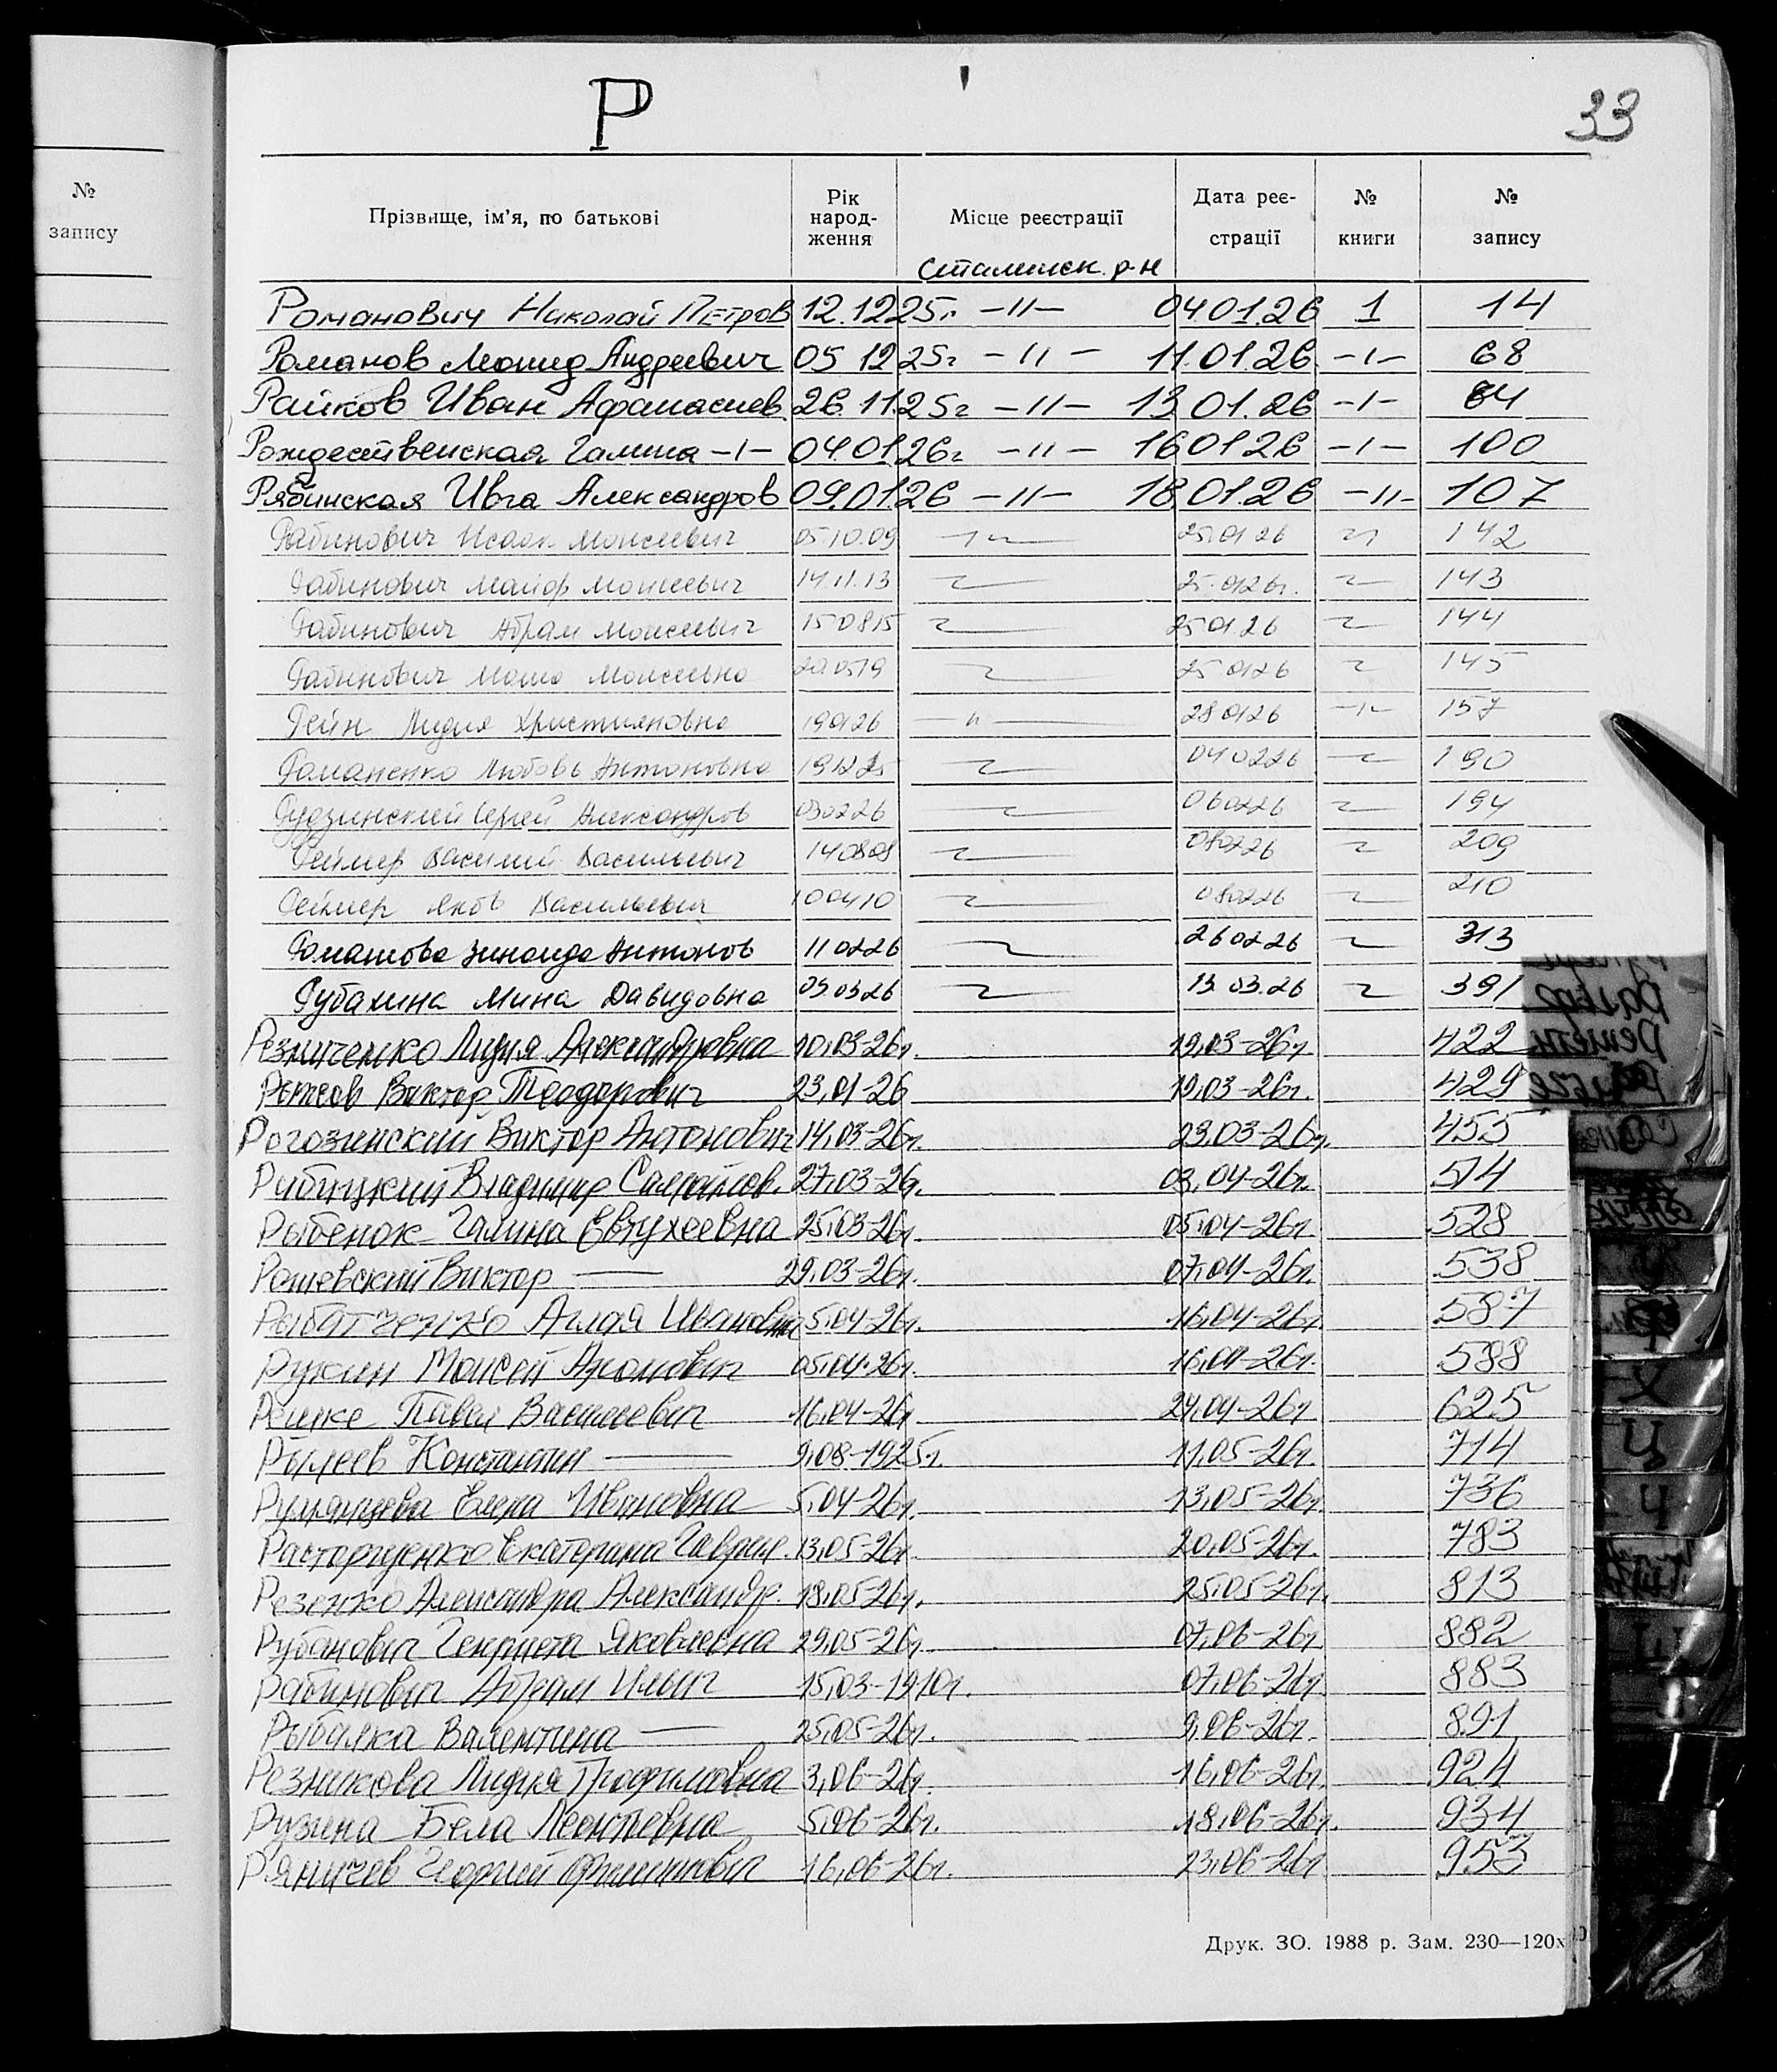 Р
33
№
запису
Прізвище, ім'я, по батькові
Рік народ-ження
Місце реєстрації
Дата реє-страції
№ книги
№ запису
Сталинск. р-н
Романович Николай Петров 12.12 25г. -11- 04.01.26 1 14
Романов Леонид Андреевич 05 12 25г -11- 11.01.26 -1- 68
Райков Иван Афанасиев 26.11.25г -11- 13 01.26 -1- 84
Рождественская Галина -1- 04.01.26г -11- 16 01 26 -1- 100
Рябинская Ивга Александров 09.01.26 -11- 18.01.26 -11- 107
Рабинович Исаак Моисеевич 05.10.09 25.01 26 142
Рабинович Моисеевич 14.11.13 25.0126г. 143
Рабинович Абрам Моисеевич 150815 25 01.26 144
Рабинович Моисеевна 20.0519 25 0126 145
Рейн Лидия Християновна 190126 -"- 28 0126 -"- 157
Романенко Любовь Антоновна 191225 040226 190
Рудзинский Сергей Александров 030226 060226 194
Реймер Василий Васильевич 140808 080226 209
Реймер Яков Васильевич 100410 080226 210
Ромашова Зинаида Антонов 110226 260226 313
Рубахина Мина Давидовна 09.0326 13.03.26 391
Резниченко Лидия Александровна 10,03-26г. 19,03-26г 422
Виктор Теодорович 23,01-26 19,03-26г. 429
Рогозинский Виктор Антонович 14,03-26г. 23,03-26г. 455
Рибицкий Владимир 27,03-26г. 03,04-26г. 514
Рыбенок Галина Евтухеевна 25,03-26г. 05,04-26г. 528
Рошевский Виктор — 29,03-26г. 07,04-26г. 538
Рыбатченко Аглая Ивановна 5,04-26г. 16,04-26г. 587
Рукин Моисей 05,04-26г. 16,04-26г. 588
Рейнке Павел Васильевич 16,04-26г 24,04-26г 625
Рылеев Константин — 9,08-1925г. 11,05-26г. 714
Румянцева Елена Ивановна 5,04-26г. 13,05-26г. 736
Расторгуенко Екатерина Гаврил. 13,05-26г. 20,05-26г. 783
Резенко Александра Александр. 18,05-26г. 25,05-26г. 813
Рубанович Генриета Яковлевна 29,05-26г. 07,06-26г 882
Рабинович Абрам Ильич 15,03-1910г. 07,06-26г. 883
Рыбалка Валентина — 25,05-26г. 9,06-26г. 891
Резникова Лидия Трофимовна 3,06-26г. 16,06-26г. 924
Рузина Бела Леонтьевна 5,06-26г. 18,06-26г. 934
Ряничев Георгий Филиппович 16,06-26г. 23,06-26г 953
Друк. ЗО. 1988 р. Зам. 230—120х